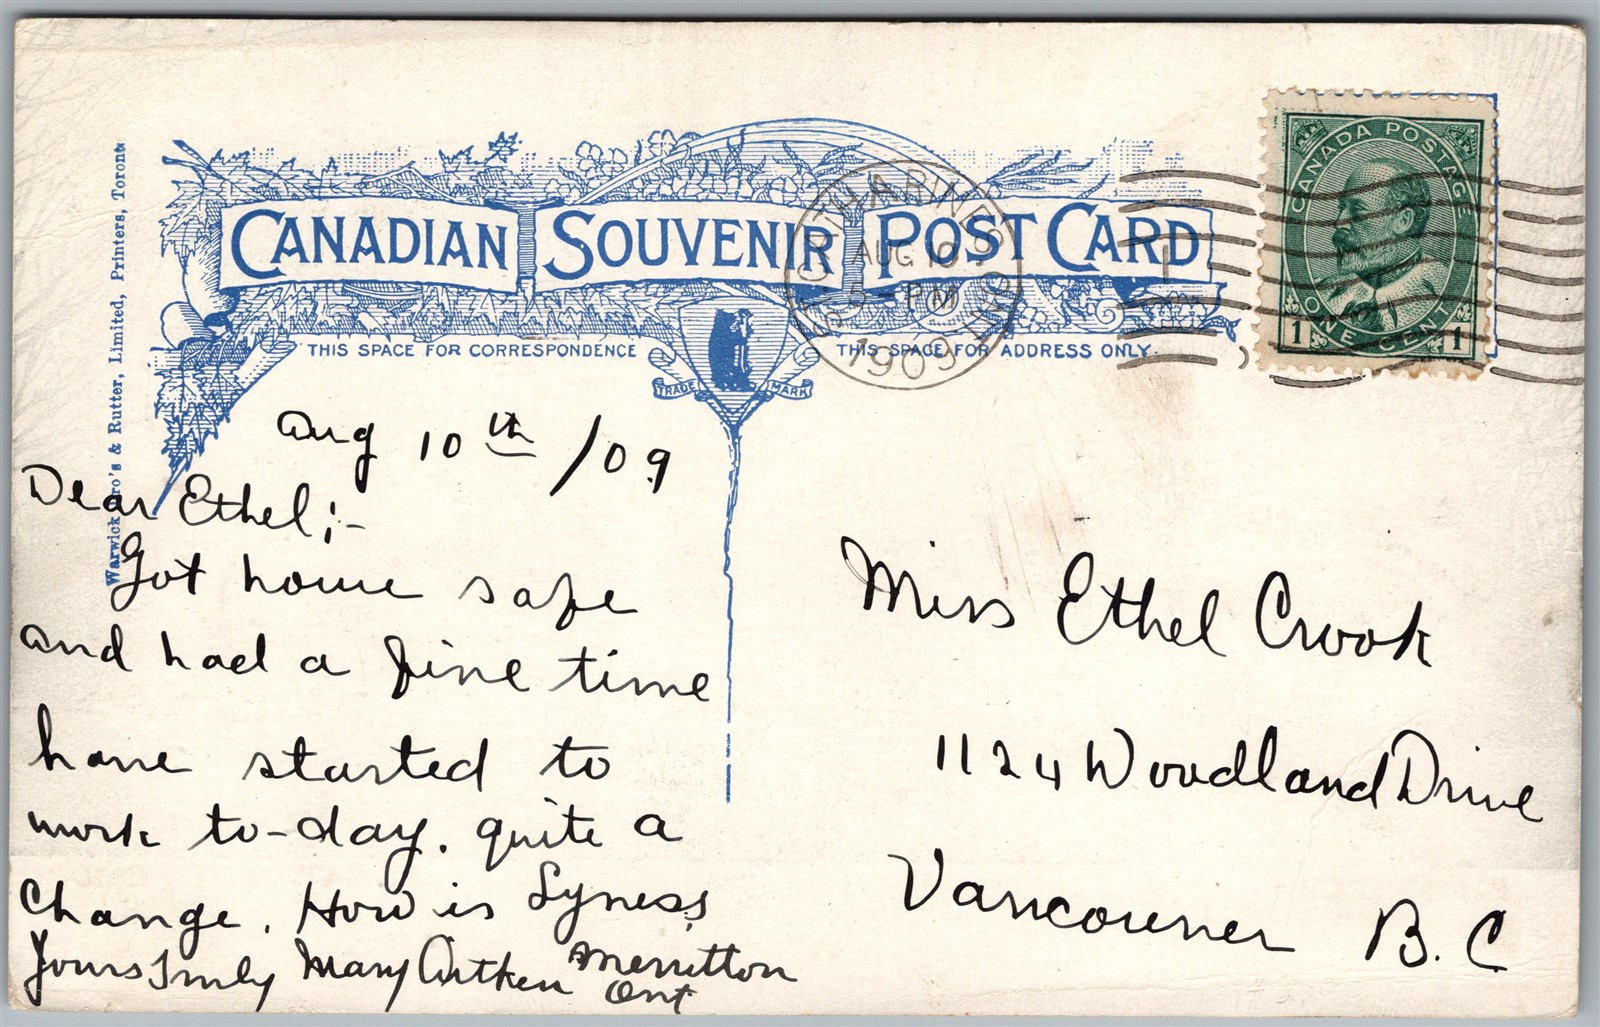 CANADIAN SOUVENIR POST CARD
THIS SPACE FOR CORRESPONDENCE
THIS SPACE FOR ADDRESS ONLY.
TRADE MARK
Warwick Bro's & Rutter, Limited, Printers, Toronto
ST. CATHARINES ONT.
AUG 10
PM
1909
CANADA POSTAGE
1 ONE CENT 1
Aug 10th /09
Dear Ethel;-
Got home safe
and had a fine time
have started to
work to-day. quite a
change. How is Lyness
Yours Truly Mary Aitken Merritton
Ont
Miss Ethel Crook
1124 Woodland Drive
Vancouver B.C